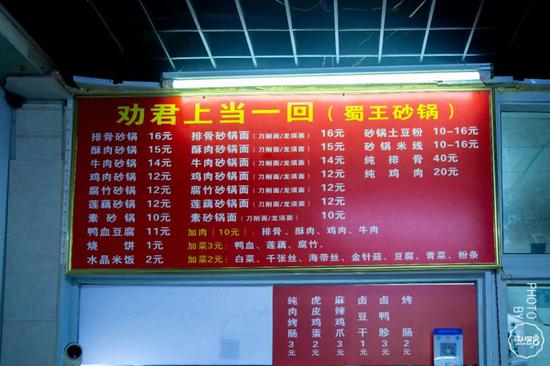 劝君上当一回（蜀王砂锅）
排骨砂锅 16元 排骨砂锅面(刀削面/龙须面) 16元 砂锅土豆粉 10-16元
酥肉砂锅 15元 酥肉砂锅面(刀削面/龙须面) 15元 砂锅米线 10-16元
牛肉砂锅 14元 牛肉砂锅面(刀削面/龙须面) 14元 纯排骨 40元
鸡肉砂锅 12元 鸡肉砂锅面(刀削面/龙须面) 12元 纯鸡肉 20元
腐竹砂锅 12元 腐竹砂锅面(刀削面/龙须面) 12元
莲藕砂锅 12元 莲藕砂锅面(刀削面/龙须面) 12元
素砂锅 10元 素砂锅面(刀削面/龙须面) 10元
鸭血豆腐 11元 加肉(10元)：排骨、酥肉、鸡肉、牛肉
烧饼 1元 加菜3元：鸭血、莲藕、腐竹、
水晶米饭 2元 加菜2元：白菜、千张丝、海带丝、金针菇、豆腐、青菜、粉条
纯肉烤肠3元
虎皮鸡蛋2元
麻辣鸡爪3元
卤豆干1元
卤鸭胗
烤肠2元
PHOTO BY